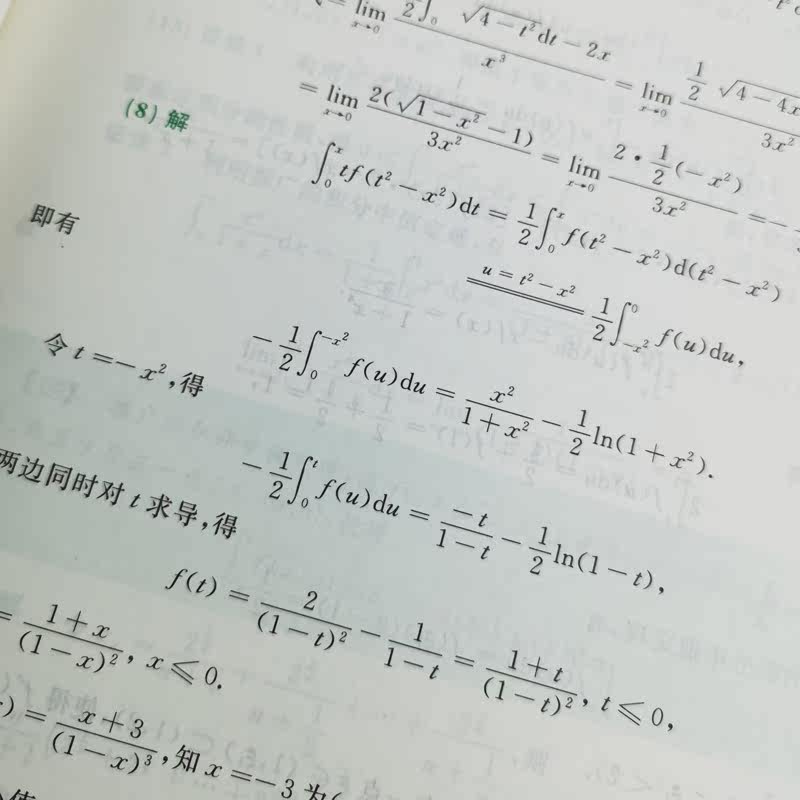 = lim_{x→0} \frac{2∫_0 √(4−t²)dt−2x}{x³} = lim_{x→0} \frac{\frac{1}{2} √(4−4x}{3x²}
= lim_{x→0} \frac{2(√(1−x²)−1)}{3x²} = lim_{x→0} \frac{2•\frac{1}{2}(−x²)}{3x²} = −
(8) 解
∫_0^x tf(t²−x²)dt = \frac{1}{2}∫_0^x f(t²−x²)d(t²−x²)
\overset{u=t²−x²}{=} \frac{1}{2}∫_{−x²}^0 f(u)du,
即有
−\frac{1}{2}∫_0^{−x²} f(u)du = \frac{x²}{1+x²} − \frac{1}{2}ln(1+x²).
令 t=−x²,得
−\frac{1}{2}∫_0^t f(u)du = \frac{−t}{1−t} − \frac{1}{2}ln(1−t),
两边同时对 t 求导,得
f(t) = \frac{2}{(1−t)²} − \frac{1}{1−t} = \frac{1+t}{(1−t)²}, t≤0,
= \frac{1+x}{(1−x)²}, x≤0.
) = \frac{x+3}{(1−x)³},知 x=−3 为